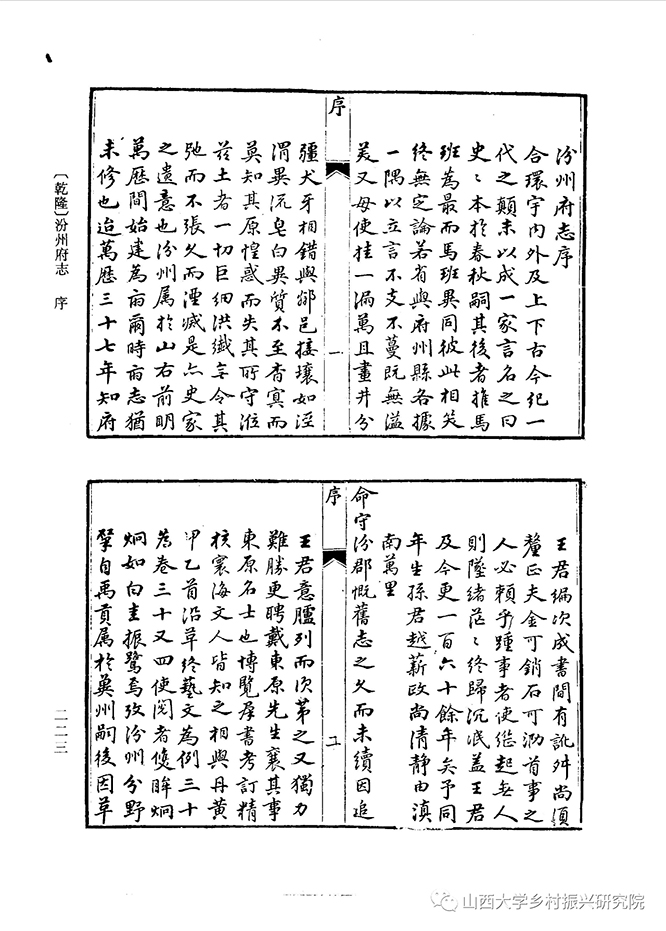 汾州府志序
合環宇内外及上下古今紀一
代之顛末以成一家言名之曰
史〻本於春秋嗣其後者推馬
班為最而馬班異同彼此相笑
終無定論若省與府州縣各據
一隅以立言不支不蔓既無溢
美又毋使挂一漏萬且畫井分
序
一
疆犬牙相錯與鄰邑接壤如涇
渭異流皂白異質不至杳冥而
莫知其原惶惑而失其所守涖
茲土者一切巨細洪纖妄令其
弛而不張久而湮滅是亦史家
之遺意也汾州属於山右前明
萬歷間始建為府爾時府志猶
未修也迨萬歷三十七年知府
〔乾隆〕汾州府志 序
王君編次成書間有訛舛尚須
釐正夫金可銷石可泐首事之
人必賴乎踵事者使繼起無人
則墜緒茫〻終歸沉泯蓋王君
及今更一百六十餘年矣予同
年生孫君越薪政尚清静由滇
南萬里
命守汾郡慨舊志之久而未續因追
序
王君意臚列而次第之又獨力
難勝更聘戴東原先生襄其事
東原名士也博覽群書考訂精
核寰海文人皆知之相與丹黄
甲乙首沿革終藝文為例三十
為卷三十又四使閱者雙眸炯
炯如白圭振鷺焉攷汾州分野
肇自禹貢属於冀州嗣後因革
二二三
山西大学乡村振兴研究院